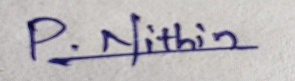 P. Nithin